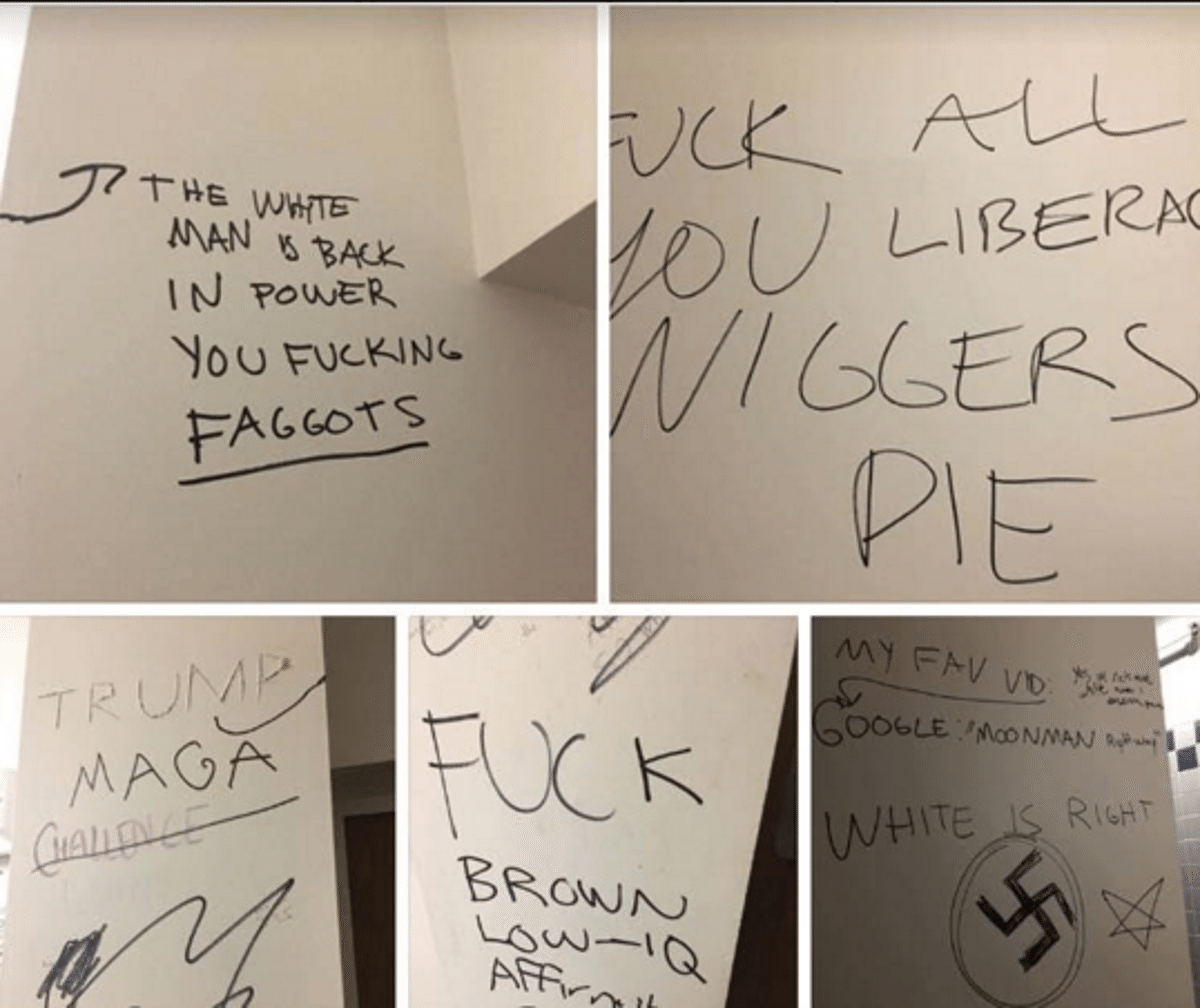 THE WHITE
MAN IS BACK
IN POWER
YOU FUCKING
FAGGOTS
FUCK ALL
YOU LIBERAL
NIGGERS
DIE
TRUMP
MAGA
CHALLENGE
FUCK
BROWN
LOW-IQ
MY FAV VID:
GOOGLE: "MOONMAN
WHITE IS RIGHT